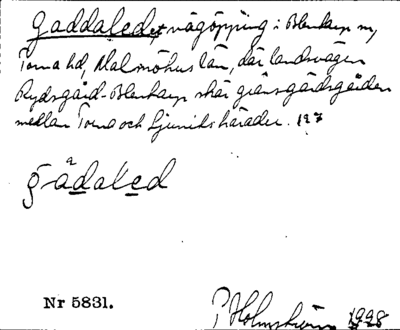 Gaddaledet vägöppning i Blentarp sn,
Torna hd, Malmöhus län, där landsvägen
Rydsgård-Blentarp skär gränsgärdsgården
mellan Torna och Ljunits härader. 197
gådaled
Nr 5831.
P Holmström 1998